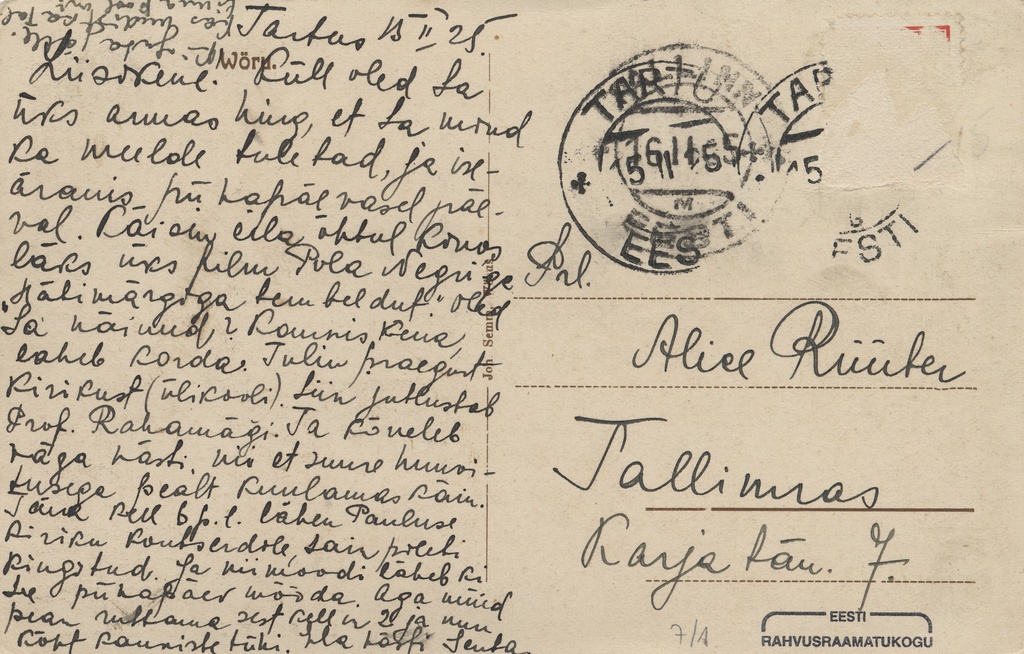 Tartus 15 II 25.
Wõru.
Liisokene. Küll oled Sa
üks armas hing, et Sa mind
ka meelde tuletad, ja ise-
äranis pühapäevasel päe-
val. Käisin eila õhtul kinos
läks üks film Pola Negriga
"Hälimärgiga tembeldut". Oled
Sa näinud? Kaunis kena,
läheb korda. Tulin praegust
kirikust (ülikooli). Siin jutlustab
Prof. Rahamägi. Ta kõneleb
väga hästi, nii et suure huvi-
tusega pealt kuulamas käin.
Täna kell 6 p.l. lähen Pauluse
kiriku kontserdile, sain pileti
kingitud. Ja niimoodi läheb ki
see pühapäev mööda. Aga nüüd
pean ruttama sest kell on 2 ja mun
kõht kaunis tühi. Ela hästi Senta
Joh. Semm
Prl.
Alice Rüüter
Tallinnas
Karja tän. 7.
TARTU
15 II 25
EESTI
TAR
ESTI
7/1
EESTI
RAHVUSRAAMATUKOGU